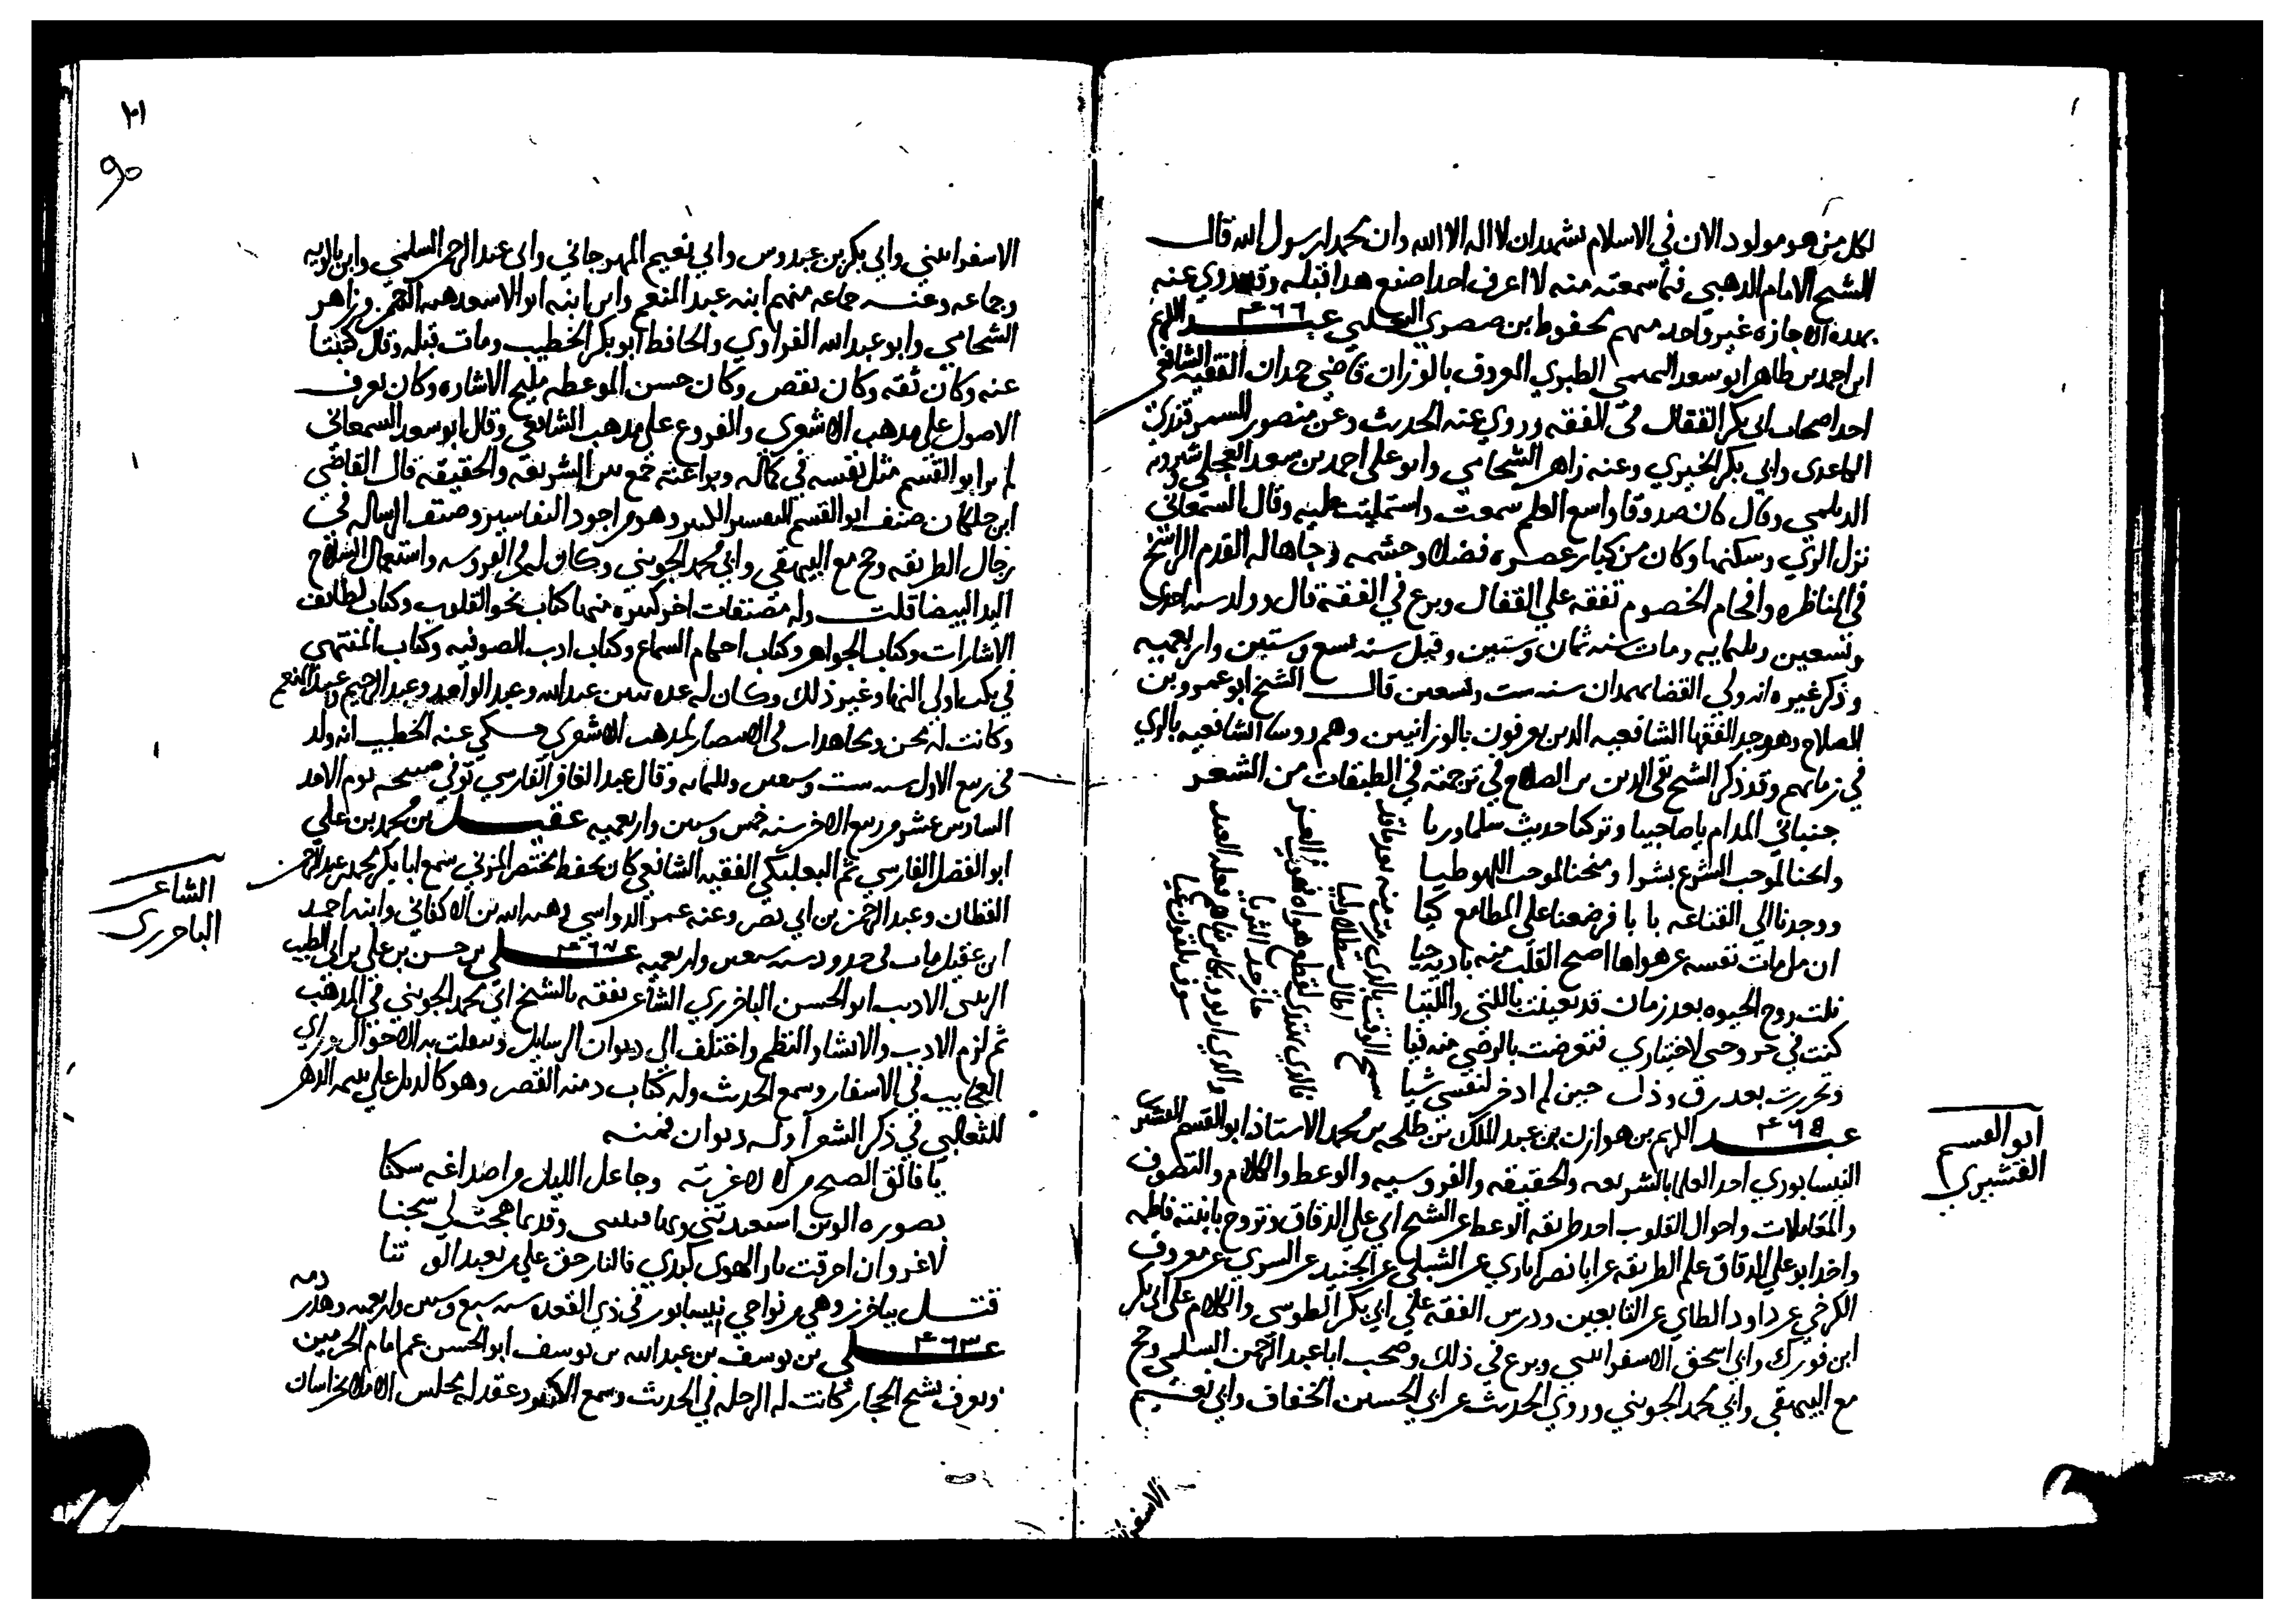 لكل من هو مولود الان في الاسلام يشهد ان لا اله الا الله وان محمدا رسول الله قال
الشيخ الامام الذهبي فيما سمعته منه لا اعرف احدا صنع هذا قبله وقد روي عنه
بهذه الاجازه غير واحد منهم محفوظ بن صصري التغلبي عبد الكريم
ابن احمد بن طاهر ابو سعد التيمي الطبري المعروف بالوزان قاضي همدان الفقيه الشافعي
احد اصحاب ابي بكر القفال في الفقه وروي عنه الحديث وعن منصور السمرقندي
وابي بكر الحيري وعنه زاهر الشحامي وابو علي احمد بن سعد العجلي شيرويه
الديلمي وقال كان صدوقا واسع العلم سمعت واستمليت عليه وقال السمعاني
نزل الري وسكنها وكان من كبار عصره فضلا وحشمه وجاها له القدم الراسخ
في المناظره وافحام الخصوم تفقه علي القفال وبرع في الفقه قال وولد سنه احدي
وتسعين وثلثمايه ومات سنه ثمان وستين وقيل سنه تسع وستين واربعميه
وذكر غيره انه ولي القضا بهمدان سنه ست وتسعين قال الشيخ ابو عمرو بن
الصلاح وهو جد الفقها الشافعيه الذين يعرفون بالوزانيين وهم روسا الشافعيه بالري
في زمانهم وقد ذكر الشيخ تقي الدين بن الصلاح في ترجمته في الطبقات من الشعر
جنباني المدام يا صاحبيا وتركنا حديث سلما وريا
وانحنا لموجب الشرع بشرا ومنحنا لموجب اللهو طيا
ووجدنا الي القناعه بابا فوضعنا علي المطامع كيا
ان من مات نفسه عن هواها اصبح القلب منه باديه حيا
نلت روح الحيوه بعد زمان قد تعينت باللتي واللتيا
كنت في حر وحشي لاختياري فتعوضت بالرضي منه فيا
وتحررت بعد رق وذل حين لم ادخر لنفسي شيا
عبد الكريم بن هوازن بن عبد الملك بن طلحه بن محمد الاستاذ ابو القسم القشيري
النيسابوري احد العلما بالشريعه والحقيقه والفروسيه والوعظ والكلام والتصوف
والمعاملات واحوال القلوب اخذ طريقه الوعظ عن الشيخ ابي علي الدقاق وتزوج بابنته فاطمه
واخذ ابو علي الدقاق علم الطريقه عن ابا نصراباذي عن الشبلي عن الجنيد عن السري عن معروف
الكرخي عن داود الطاي عن التابعين ودرس الفقه علي ابي بكر الطوسي والكلام علي ابي بكر
ابن فورك وابي اسحق الاسفرايني وبرع في ذلك وصحب ابا عبد الرحمن السلمي وحج
مع البيهقي وابي محمد الجويني وروي الحديث عن ابي الحسين الخفاف وابي نعيم
ابو القسم
القشيري
الاسفرايني وابي بكر بن عبدوس وابي نعيم المهرجاني وابي عبد الرحمن السلمي وابن بالويه
وجماعه وعنه جماعه منهم ابنه عبد المنعم وابن ابنه ابو الاسعد هبه الرحمن وزاهر
الشحامي وابو عبد الله الفراوي والحافظ ابو بكر الخطيب ومات قبله وقال كتبنا
عنه وكان ثقه وكان يقص وكان حسن الموعظه مليح الاشاره وكان يعرف
الاصول علي مذهب الاشعري والفروع علي مذهب الشافعي وقال ابو سعد السمعاني
لم ير ابو القسم مثل نفسه في كماله وبراعته جمع بين الشريعه والحقيقه قال القاضي
ابن خلكان صنف ابو القسم التفسير الكبير وهو من اجود التفاسير وصنف الرساله في
رجال الطريقه وحج مع البيهقي وابي محمد الجويني وكان له في الفروسه واستعمال السلاح
اليد البيضا قلت وله مصنفات اخر كثيره منها كتاب نحو القلوب وكتاب لطايف
الاشارات وكتاب الجواهر وكتاب احكام السماع وكتاب ادب الصوفيه وكتاب المنتهي
في نكت اولي النها وغير ذلك وكان له عده بنين عبد الله وعبد الواحد وعبد الرحيم وعبد المنعم
وكانت له محن ومجاهدات في الانتصار لمذهب الاشعري حكي عنه الخطيب انه ولد
في ربيع الاول سنه ست وسبعين وثلثمايه وقال عبد الغافر الفارسي توفي صبيحه يوم الاحد
السادس عشر من ربيع الاخر سنه خمس وستين واربعميه عقيل بن محمد بن علي
ابو الفضل الفارسي ثم البعلبكي الفقيه الشافعي كان يحفظ مختصر المزني سمع ابا بكر محمد بن عبد الرحمن
القطان وعبد الرحمن بن ابي نصر وعنه عمر الدواسي هبه الله بن الاكفاني وابنه احمد
ابن عقيل مات في حدود سنه سبعين واربعميه علي بن حسن بن علي بن ابي الطيب
الاديب ابو الحسن الباخرزي الشاعر تفقه بالشيخ ابي محمد الجويني في المذهب
ثم لزم الادب والانشاد والنظم واختلف الي ديوان الرسايل وتنقلت به الاحوال وراي
العجايب في الاسفار وسمع الحديث وله كتاب دميه القصر وهو كالذيل علي يتيمه الدهر
للثعالبي في ذكر الشعرا وله ديوان فمنه
يا فالق الصبح من لالا غرته وجاعل الليل من اصداغه سكنا
بصوره الوثن استعبدتني وبها فتنتني وقديما هجت لي شجنا
لا غرو ان احرقت نار الهوي كبدي فالنار حق علي من يعبد الوثنا
قتل بباخرز وهي من نواحي نيسابور في ذي القعده سنه سبع وستين واربعميه وهدر دمه
علي بن يوسف بن عبد الله بن يوسف ابو الحسن عم امام الحرمين
ويعرف بشيخ الحجاز كانت له الرحله في الحديث وسمع الكثير وعقد له مجلس الاملا بخراسان
الشاعر
الباخرزي